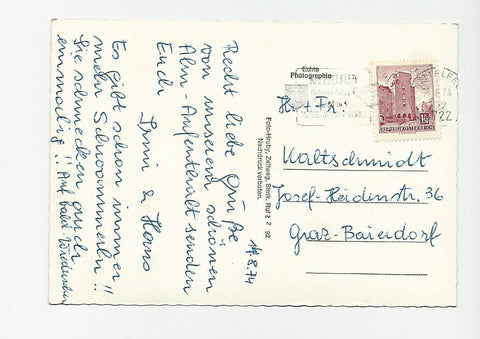 14.8.74
Recht liebe Grüße
von unserem schönen
Alm-Aufenthalt senden
Euch
Irmi & Hans
Es gibt schon immer
mehr Schwammerln!!
Sie schmecken auch
einmalig!! Auf bald. Wiedersehen
Foto-Hruby, Zeltweg, Stmk. Ruf 2 2 92
Nachdruck verboten.
Echte
Photographie
1.50
REPUBLIK ÖSTERREICH
722
Kaltschmidt
Josef-Heidenstr. 36
Graz-Baierdorf